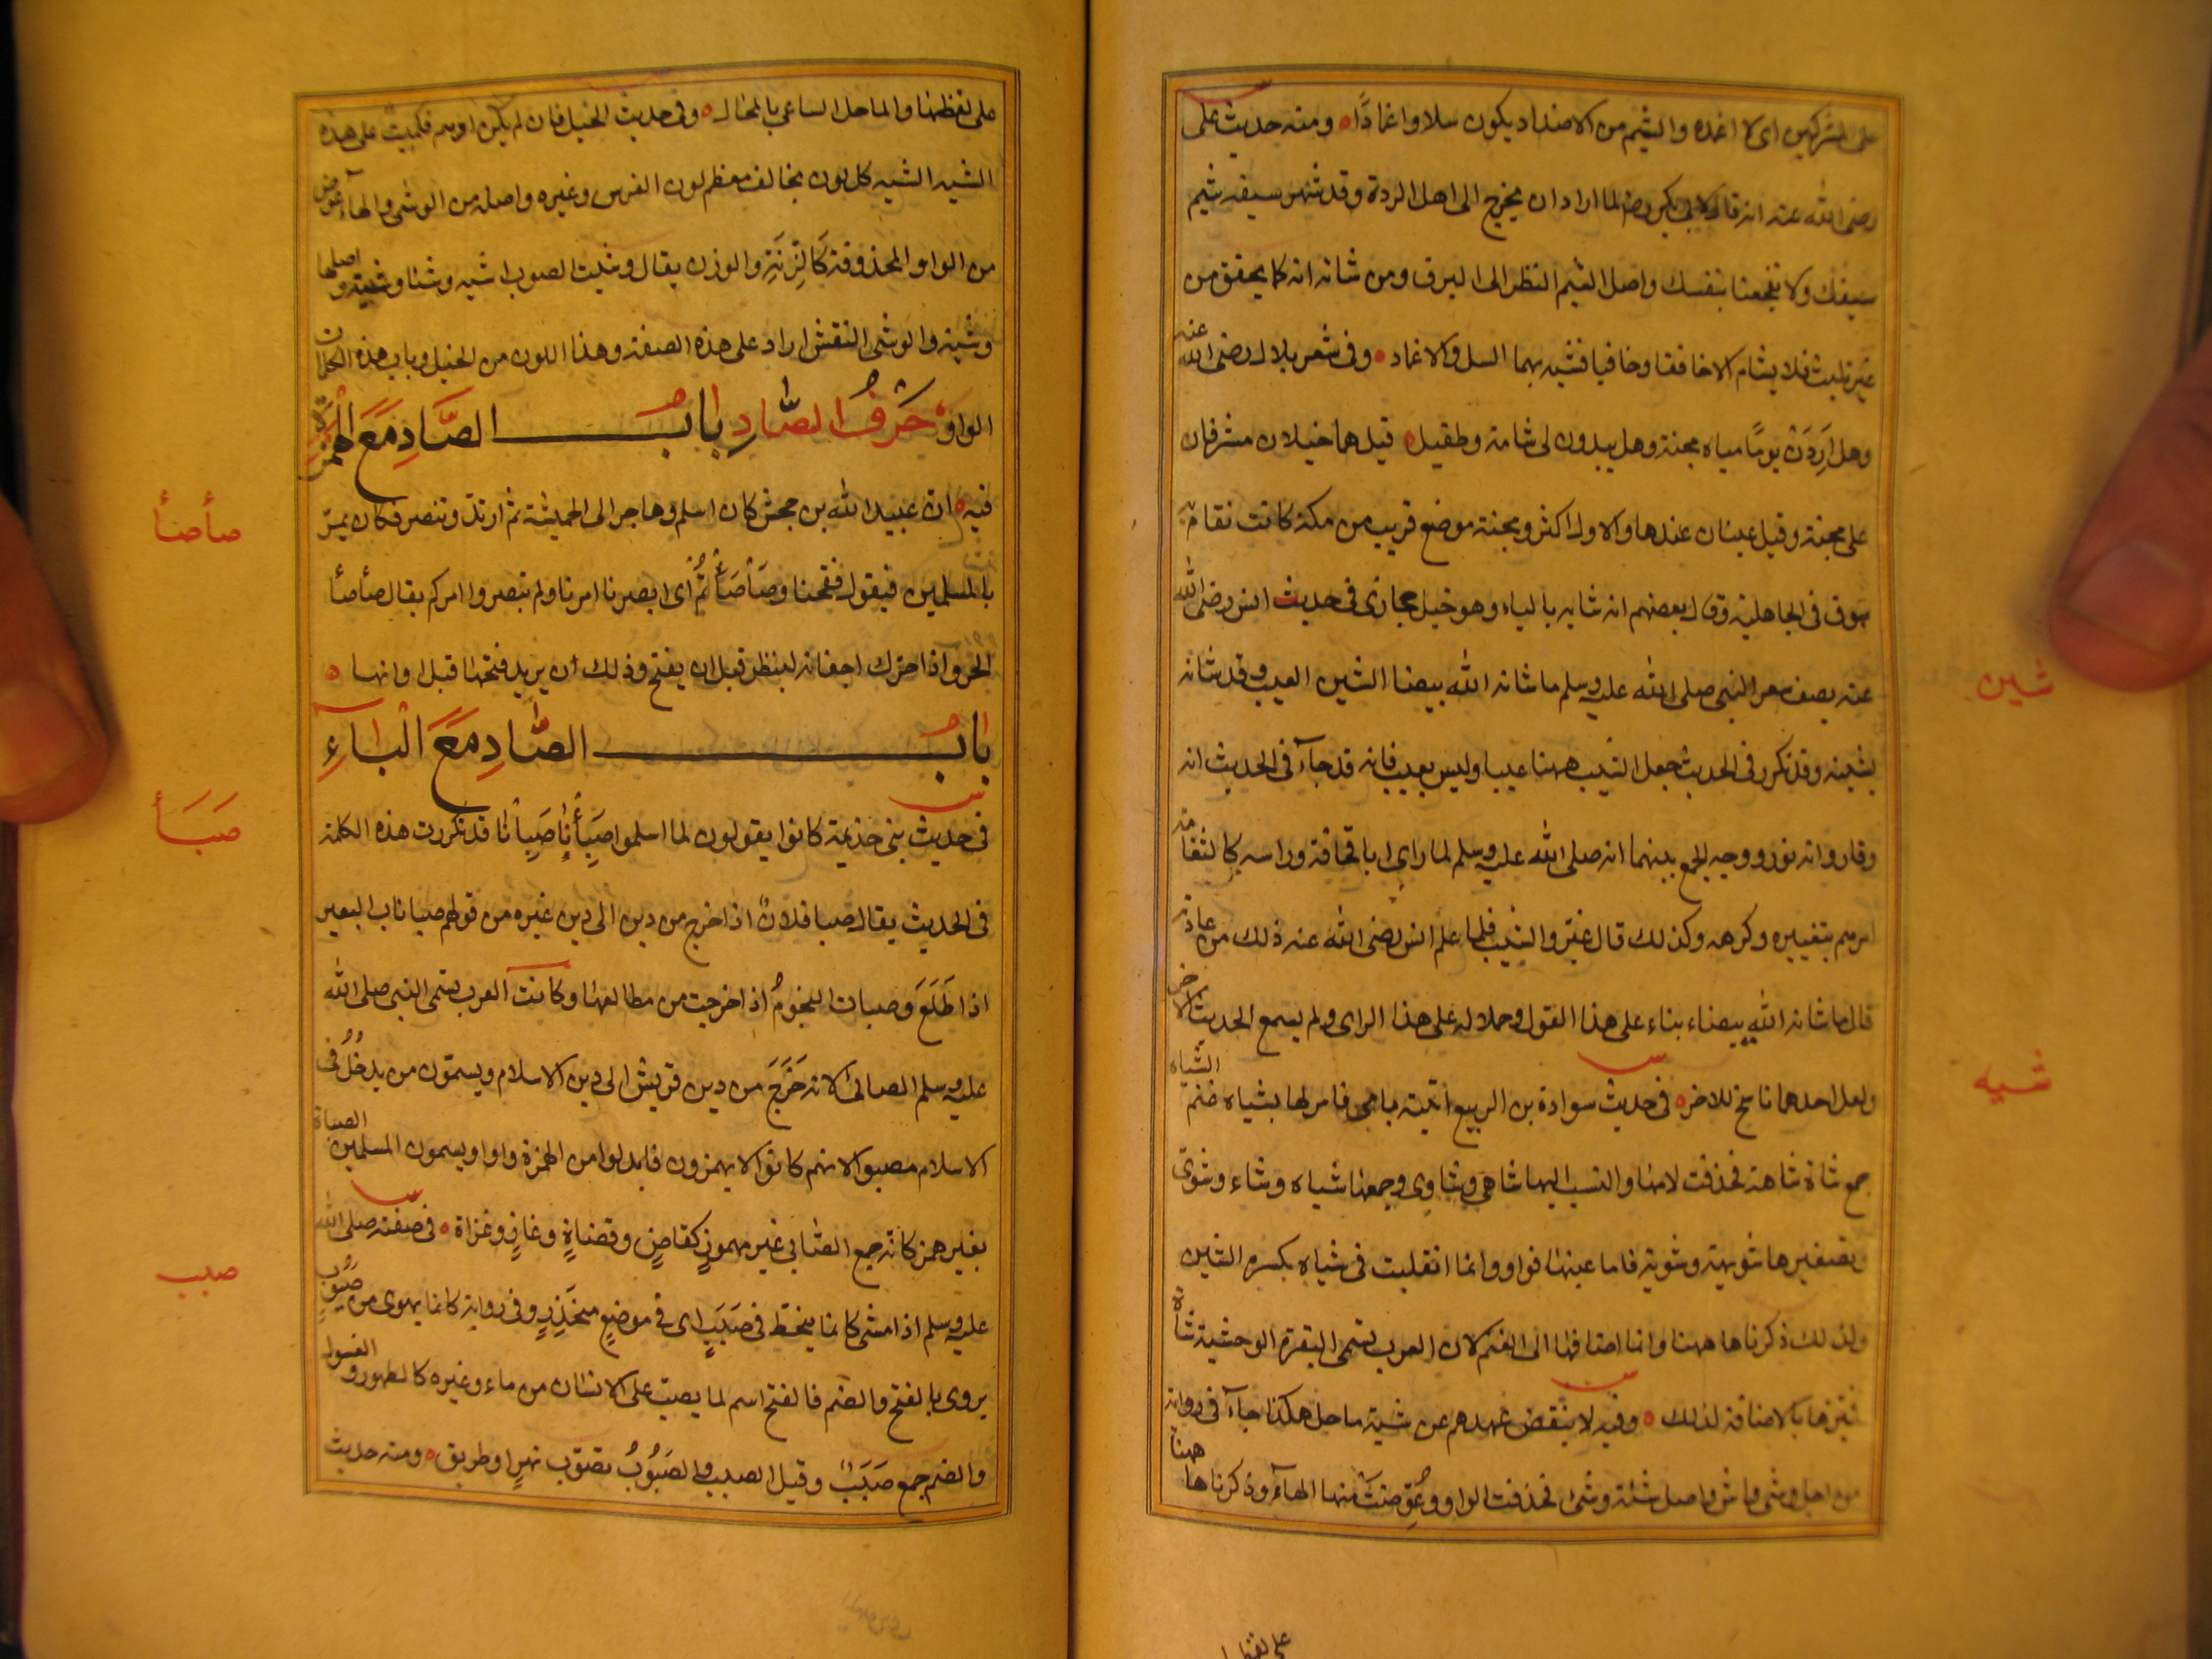 على المشركين اى لا اغمده والشيم من الاضداد يكون سلا واغمادًا ومنه حديث على
رضى الله عنه انه قال لابى بكر رضه لما اراد ان يخرج الى اهل الردة وقد شهر سيفه شيم
سيفك ولا تفجعنا بنفسك واصل الشيم النظر الى البرق ومن شانه انه كما يخفق من
غير تلبث فلا يشام الا خافقا وخافيا فشبه بهما السل والاغماد وفى شعر بلال رضى الله عنه
وهل اَرِدَنْ يومًا مياه مجنة وهل يبدون لى شامة وطفيل قيل هما جبلان مشرفان
على مجنة وقيل عينان عندها والاول اكثر ومجنة موضع قريب من مكة كانت تقام به
سوق فى الجاهلية وقال بعضهم انه شابه بالباء وهو جبل حجازى فى حديث انس رضى الله
عنه يصف شعر النبى صلى الله عليه وسلم ما شانه الله ببيضا الشين العيب وقد شانه
يشينه وقد تكرر فى الحديث جعل الشيب ههنا عيبا وليس بعيب فانه قد جآء فى الحديث انه
وقار وانه نور ووجه الجمع بينهما انه صلى الله عليه وسلم لما راى ابا قحافة وراسه كالثغامة
امرهم بتغييره وكرهه وكذلك قال غيّروا الشيب فلما علم انس رضى الله عنه ذلك من عادته
قال ما شانه الله ببيضاء بناء على هذا القول وحملا له على هذا الراى ولم يسمع الحديث الاخر
ولعل احدهما ناسخ للاخر فى حديث سوادة بن الربيع اتيته بامى فامر لها بشياه غنم الشياه
جمع شاة شاهة فحذفت لامها والنسب اليها شاهى وشاوى وجمعها شياه وشاء وشوىّ
وتصغيرها شويهة وشوية فاما عينها فواو وانما انقلبت فى شياه بكسرة الشين
ولذلك ذكرناها ههنا وانما اضافها الى الغنم لان العرب تسمى البقرة الوحشية شاة
فميزها بالاضافة لذلك وفيه لا ينقض عهدهم عن شية ماحل هكذا جآء فى رواية
من وشى واصل شية وشى فحذفت الواو وعُوِّضت منها الهآء وذكرناها ههنا
شين
شيه
على لفظها والماحل الساعى بالمحال وفى حديث الخيل فان لم يكن ادهم فكميت على هذه
الشيه الشيه كل لون يخالف معظم لون الفرس وغيره واصله من الوشى والهآء عوض
من الواو المحذوفة كَالزِنَةِ والوزن يقال وشيت الثوب اشيه وشيا وشية واصلها
وشية والوشى النقش اراد على هذه الصفة وهذا اللون من الخيل وباب هذه الكلمات
الواو حَرْفُ الصَّادِ بابُ الصَّادِ مَعَ الْهَمْزَةِ
فيه ان عبيد الله بن جحش كان اسلم وهاجر الى الحبشة ثم ارتد وتنصر فكان يمرّ
بالمسلمين فيقول فقحنا وصَأْصَأْتُمْ اى ابصرنا امرنا ولم تبصروا امركم يقال صأصأ
الجرو اذا حرّك اجفانه لينظر قبل ان يفتح وذلك ان يريد فتحها قبل اوانها
بابُ الصَّادِ مَعَ الْبَآءِ
فى حديث بنى جذيمة كانوا يقولون لما اسلموا صَبَأْنَا صَبَأْنَا قد تكررت هذه الكلمة
فى الحديث يقال صبا فلانٌ اذا خرج من دين الى دين غيره من قولهم صبا ناب البعير
اذا طَلَعَ وصبات النجومُ اذا خرجت من مطالعها وكانت العرب تسمى النبى صلى الله
عليه وسلم الصابئ لانه خَرَجَ من دين قريش الى دين الاسلام ويسمّون من يدخُلُ فى
الاسلام مصبوا لانهم كانوا لا يهمزون فابدلوا من الهمزة واوا ويسمون المسلمين الصباة
بغير همز كانه جمع الصّابى غير مهموزٍ كقاضٍ وقضاةٍ وغازٍ وغزاة فى صفته صلى الله
عليه وسلم اذا مشى كانما ينحط فى صَبَبٍ اى فى موضعٍ منحَدِرٍ وفى رواية كانما يهوى من صَبُوبٍ
يروى بالفتح والضم فالفتح اسم لما يصبّ على الانسان من ماء وغيره كالطهور و الغسول
والضم جمع صَبَبٍ وقيل الصبب والصَبُوبُ تصوّب نهرٍ او طريق ومنه حديث
صأصأ
صَبَأَ
صبب